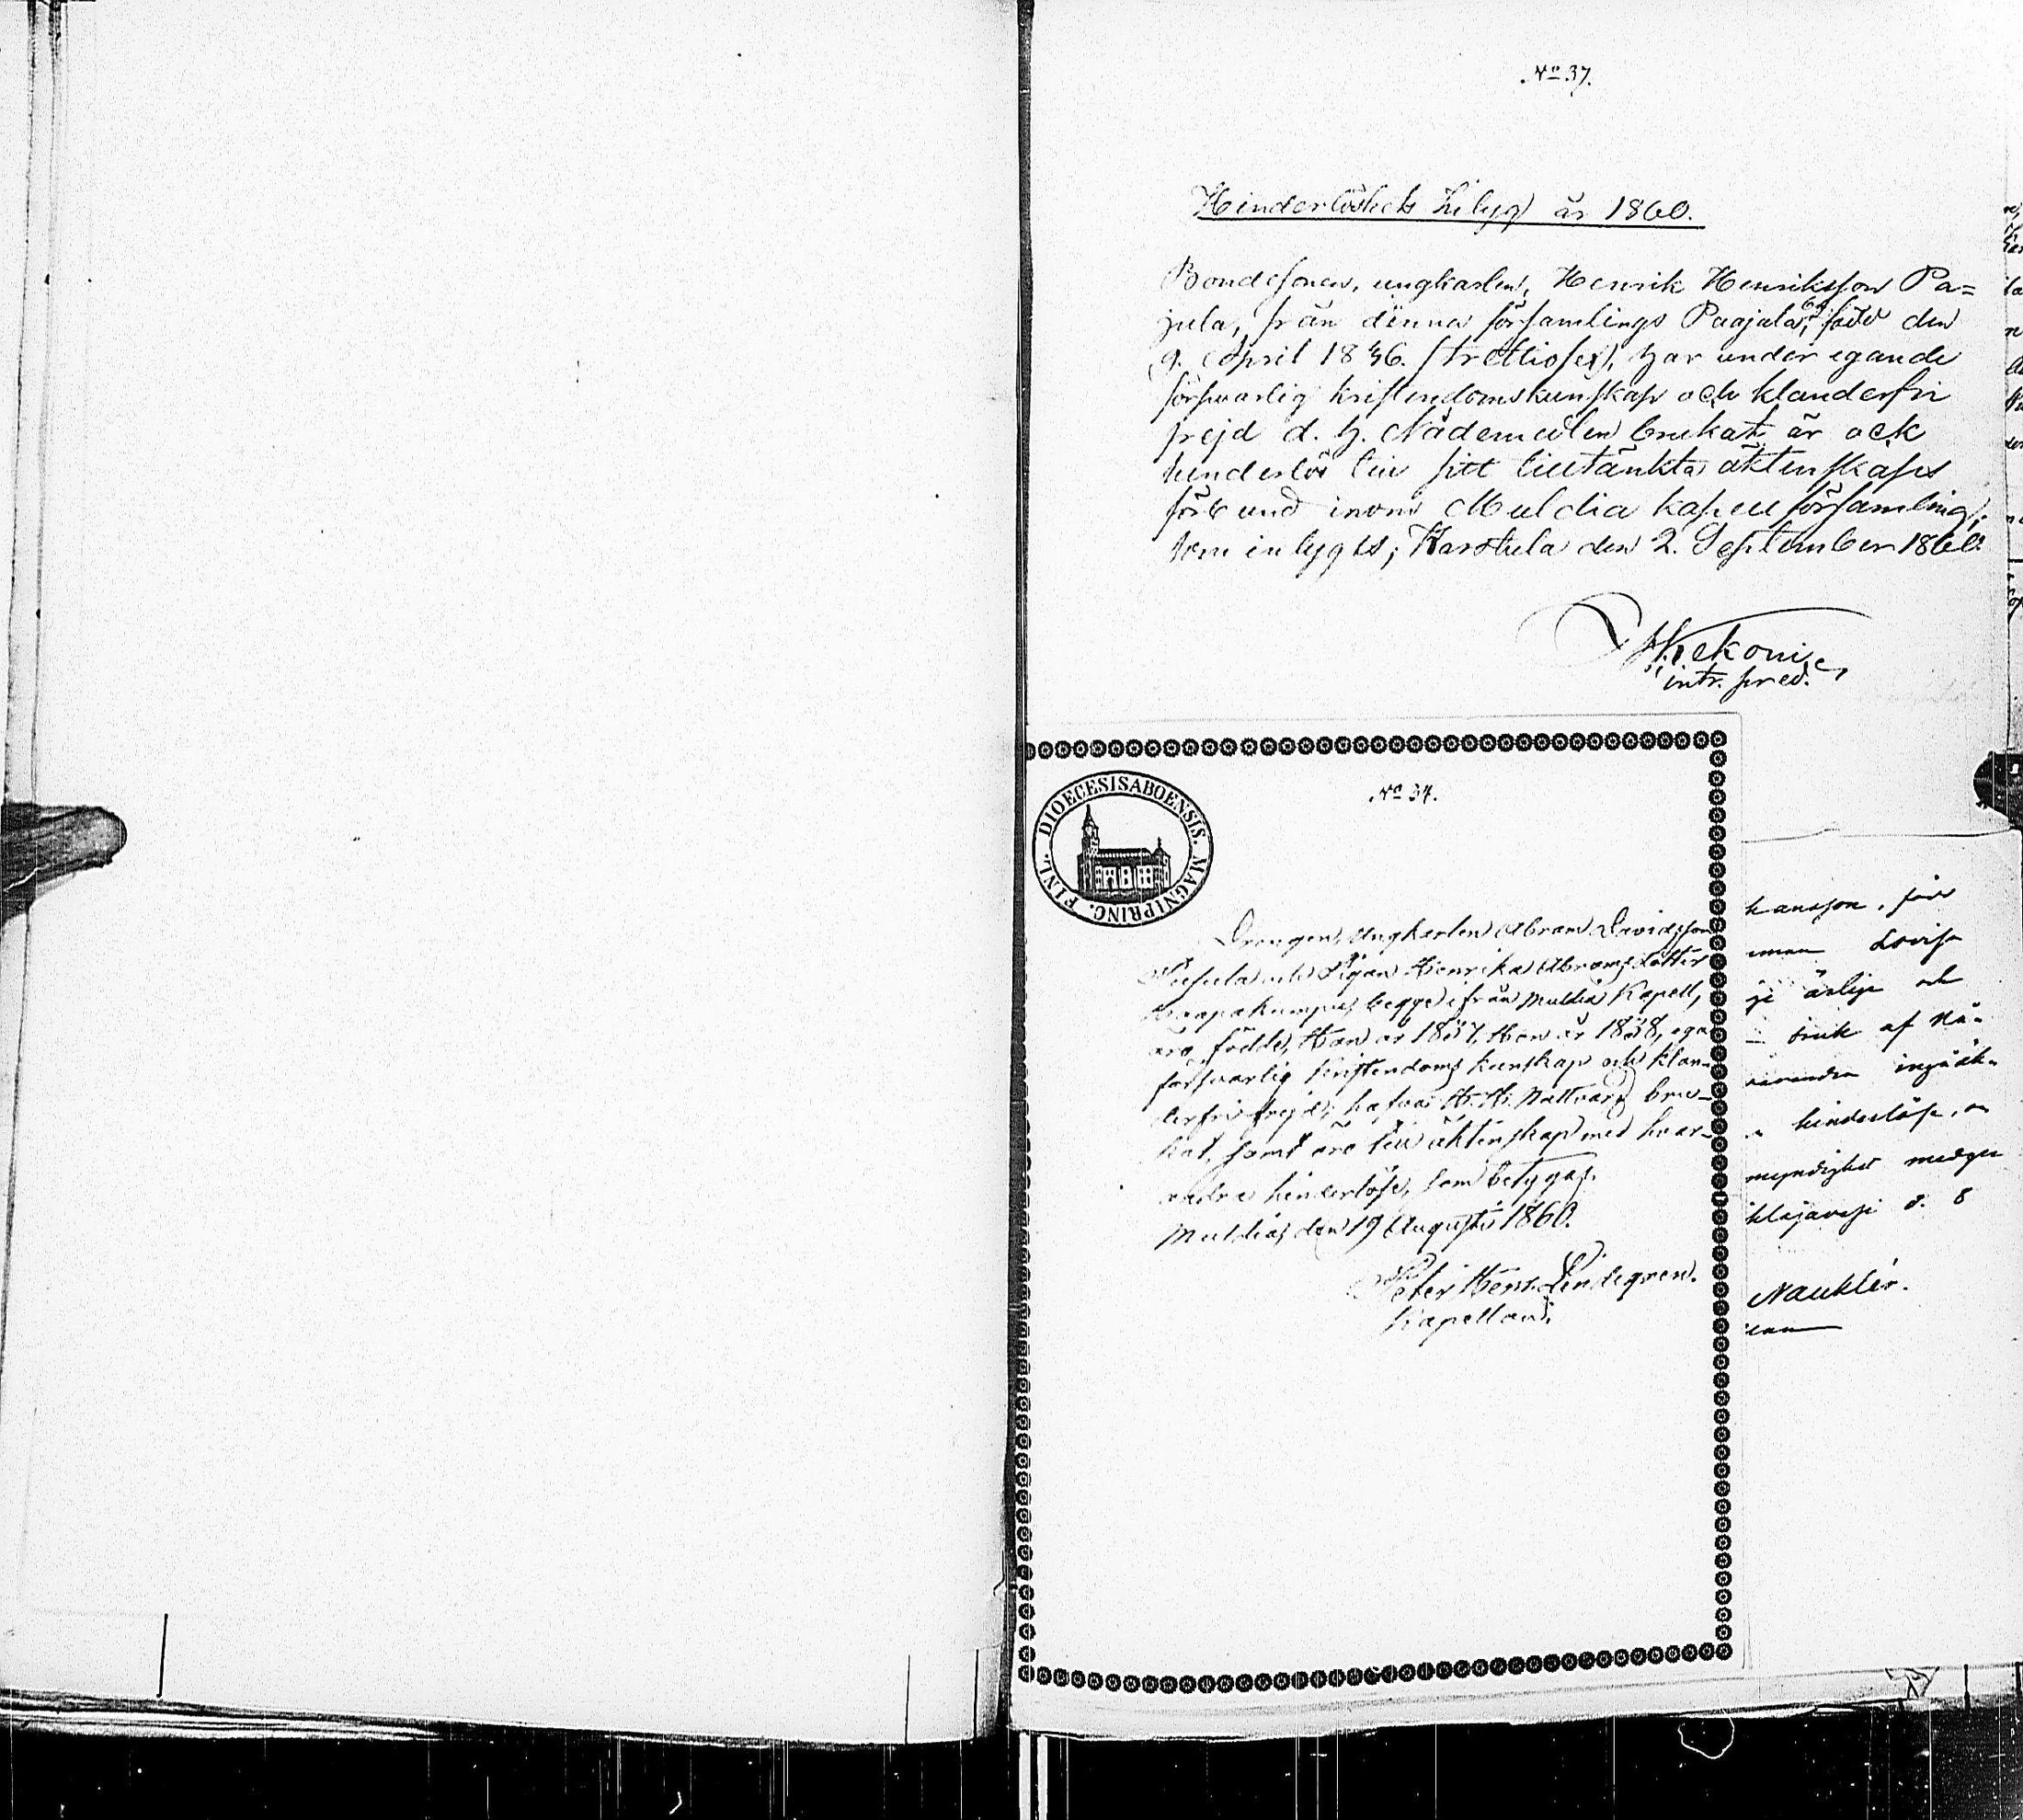 No 37.
Hinderlöshets betyg år 1860.
Bondesonen, ungkarlen, Henrik Henriksson Pa=
jula, från denna församlings Paajala by, född den
9. April 1836. (trettiosex), har under egande
försvarlig kristendomskunskap och klanderfri
frejd d. h. Nådemedlen brukat, är ock
hinderlös till sitt tilltänkta äktenskaps
förbund inom Muldia kapellförsamling;
som betygas; Karstula den 2. September 1860.
Kekoni
intr. pred.
DIOECESIS ABOENSIS. MAGNI PRINC. FINL.
No 34.
Drengen, Ungkarlen Abram Davidsson
och Pigan Henrika Abramsdotter
begge ifrån Muldia Kapell,
äro födde, Han år 1837, Hon år 1838, ega
försvarlig Kristendoms kunskap och klan-
derfri frejd, hafva H. H. Nattvard bru-
kat, samt äro till äktenskap med hvar-
andra hinderlöse, som betygas.
Muldia, den 19 Augusti 1860.
Peter Henr. Lindegren.
Kapellan.
hansson, för
Lovisa
ärlige och
bruk af Nå-
ingå äk-
hinderlöse, om
myndighet medger
d. 8
Nauklér.